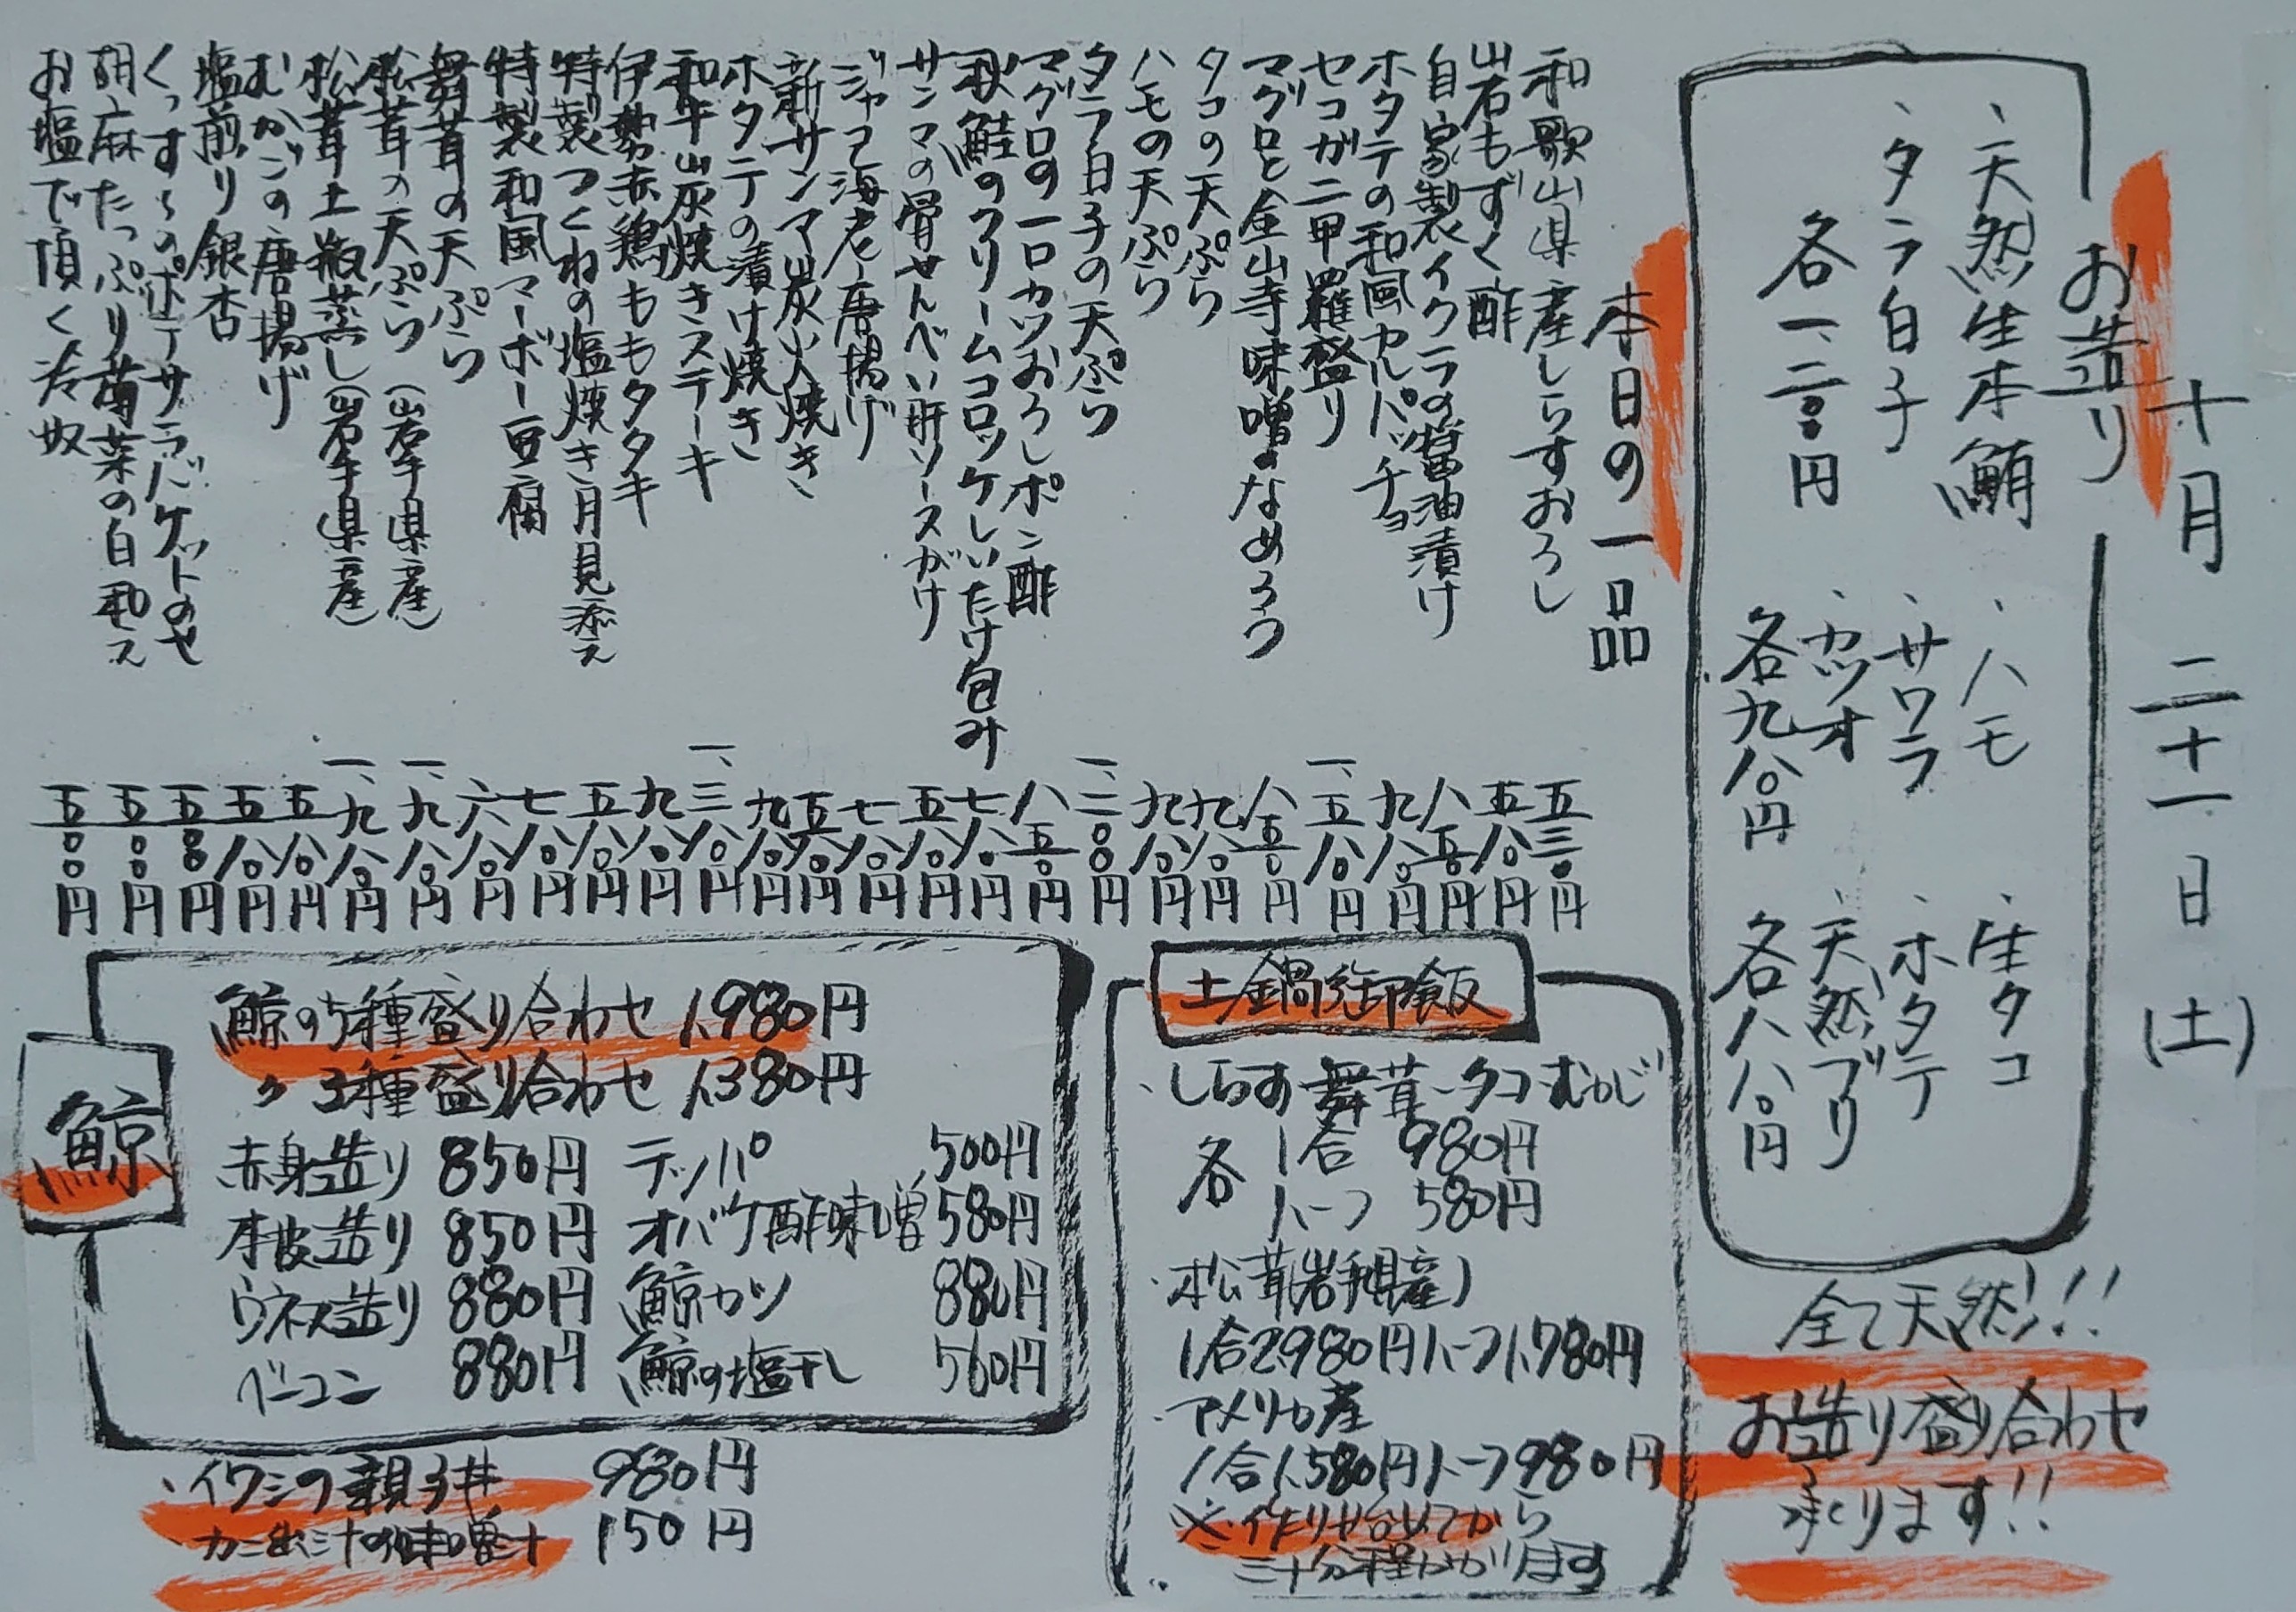 十月二十一日(土)
お造り
、天然生本鮪
、タラ白子
各一、二〇〇円
、ハモ
、サワラ
、カツオ
各九八〇円
、生タコ
、ホタテ
、天然ブリ
各八八〇円
全て天然!!
お造り盛り合わせ
承ります!!
本日の一品
和歌山県産しらすおろし 五三〇円
岩もずく酢 五八〇円
自家製イクラの醤油漬け 八五〇円
ホタテの和風カルパッチョ 九八〇円
セコガニ甲羅盛り 一、五八〇円
マグロと金山寺味噌のなめろう 八五〇円
タコの天ぷら 九八〇円
ハモの天ぷら 九八〇円
タラ白子の天ぷら 一、二〇〇円
マグロの一口カツおろしポン酢 八五〇円
秋鮭のクリームコロッケしいたけ包み 七八〇円
サンマの骨せんべい肝ソースがけ 五八〇円
ジャコ海老唐揚げ 七八〇円
新サンマ炭火焼き 五八〇円
ホタテの漬け焼き 九八〇円
和牛山炭焼きステーキ 一、三八〇円
伊勢赤鶏ももタタキ 九八〇円
特製つくねの塩焼き月見添え 五八〇円
特製和風マーボー豆腐 七八〇円
舞茸の天ぷら 六八〇円
松茸の天ぷら(岩手県産) 一、九八〇円
松茸土瓶蒸し(岩手県産) 一、九八〇円
むかごの唐揚げ 五八〇円
塩煎り銀杏 五八〇円
くっすんのポテサラバケットのせ 五〇〇円
胡麻たっぷり菊菜の白和え 五〇〇円
お塩で頂く冷奴 五〇〇円
土鍋御飯
、しらす・舞茸・タコ・むかご
各 1合 980円
ハーフ 580円
・松茸(岩手県産)
1合2,980円ハーフ1,780円
・アメリカ産
1合1,580円ハーフ980円
※作り始めてから
三十分程かかります
鯨
鯨の5種盛り合わせ 1,980円
〃 3種盛り合わせ 1,380円
赤身造り 850円 テッパ 500円
本皮造り 850円 オバケ酢味噌 580円
ウネス造り 880円 鯨カツ 880円
ベーコン 880円 鯨の塩干し 560円
・イワシの親子丼 980円
・カニ出汁の味噌汁 150円